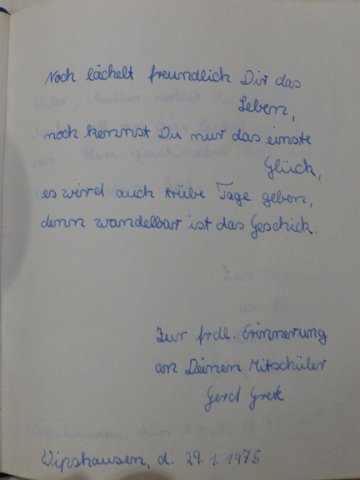 Noch lächelt freundlich Dir das
Leben,
noch kennst Du nur das einste
Glück,
es wird auch trübe Tage geben,
denn wandelbar ist das Geschick.
Zur frdl. Erinnerung
an Deinen Mitschüler
Gerd Grek
Wipshausen, d. 29.1.1975